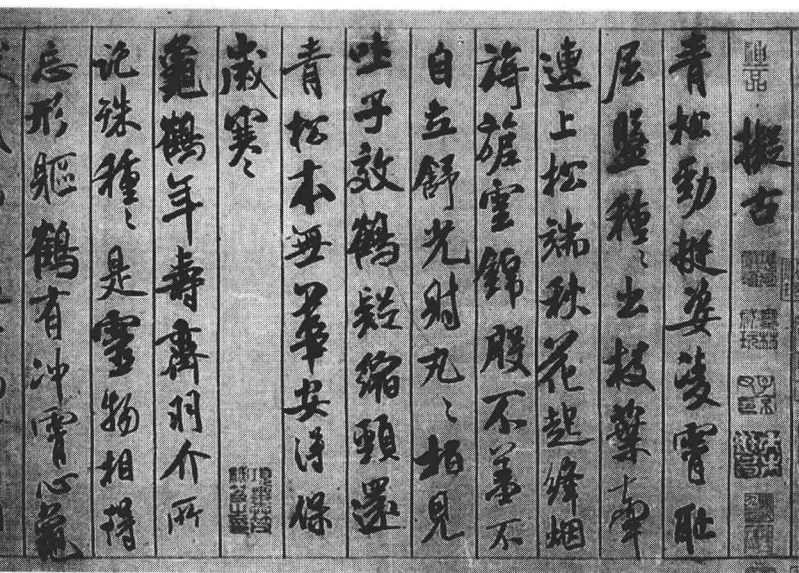 神品
擬古
青松勁挺姿凌霄恥
屈盤種〻出枝葉牽
連上松端秋花起絳烟
旖旎雲錦殷不羞不
自立舒光射丸〻柏見
吐子效鶴疑縮頸還
青松本無華安得保
歲寒〻
龜鶴年壽齊羽介所
託殊種〻是靈物相得
忘形軀鶴有冲霄心龜